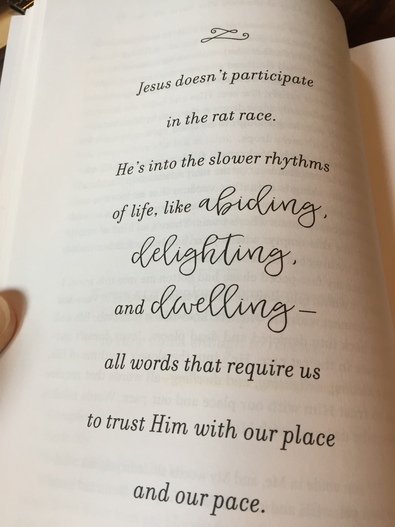 Jesus doesn't participate
in the rat race.
He's into the slower rhythms
of life, like abiding,
delighting,
and dwelling—
all words that require us
to trust Him with our place
and our pace.